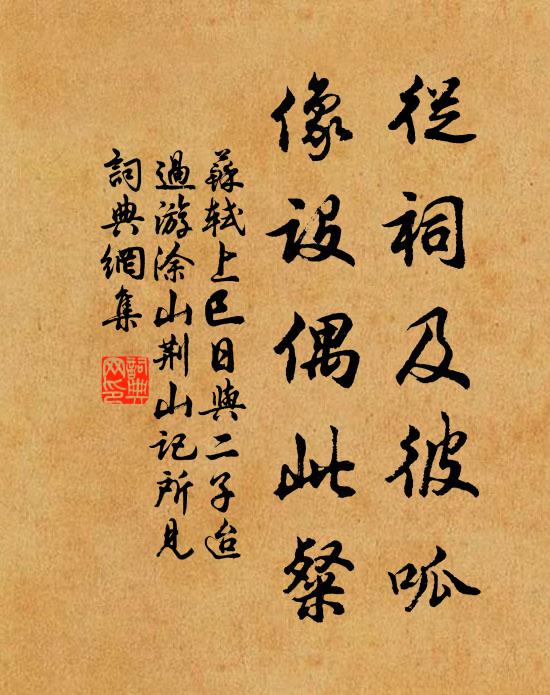 從祠及彼呱
像設偶此粲
蘇軾上巳日與二子迨
過游涂山荆山記所見
詞典網集
詞典
网印